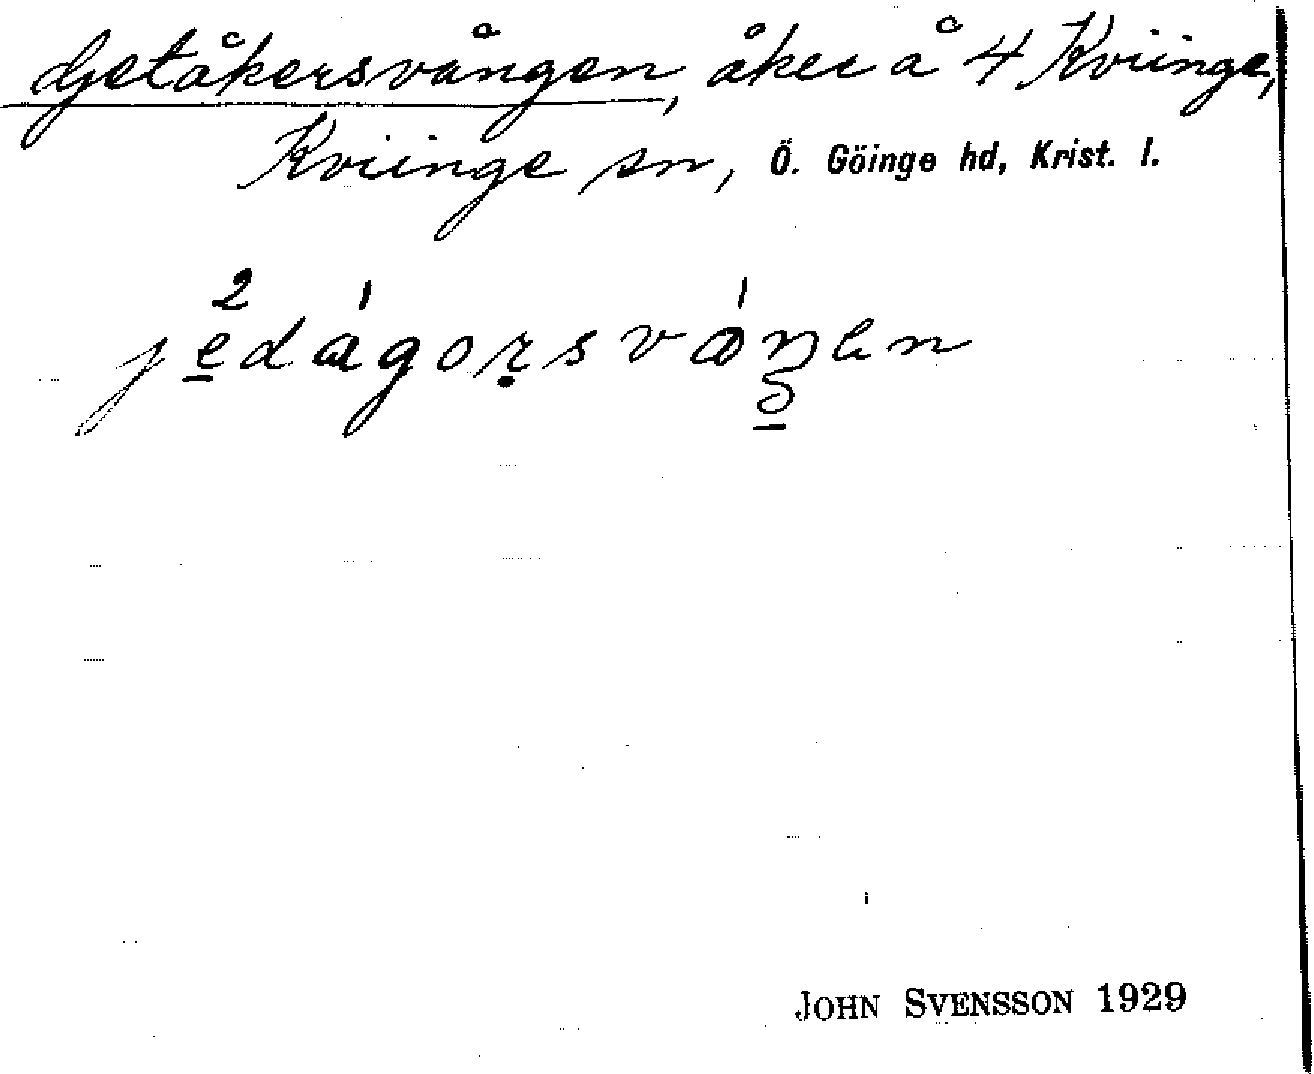 Getåkersvången, åker å 4 Kviinge,
Kviinge sn, Ö. Göinge hd, Krist. l.
JOHN SVENSSON 1929